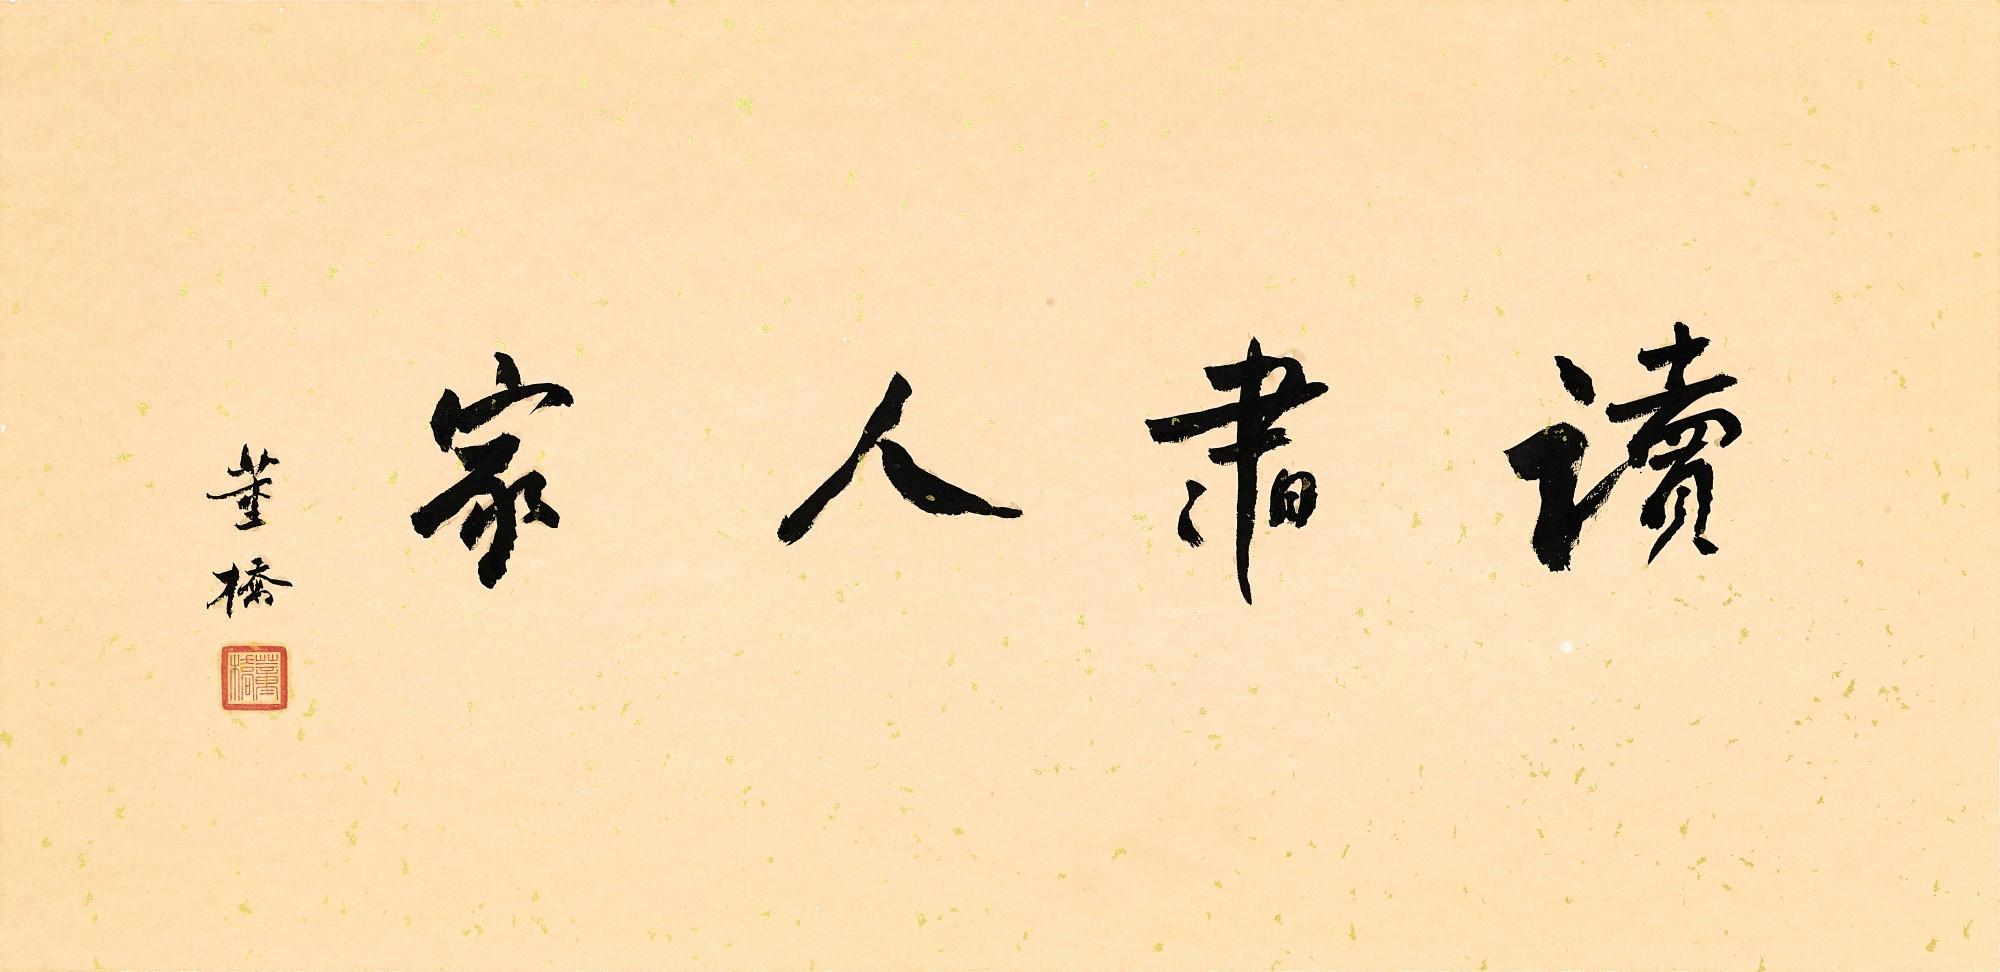 讀書人家
董橋
董橋